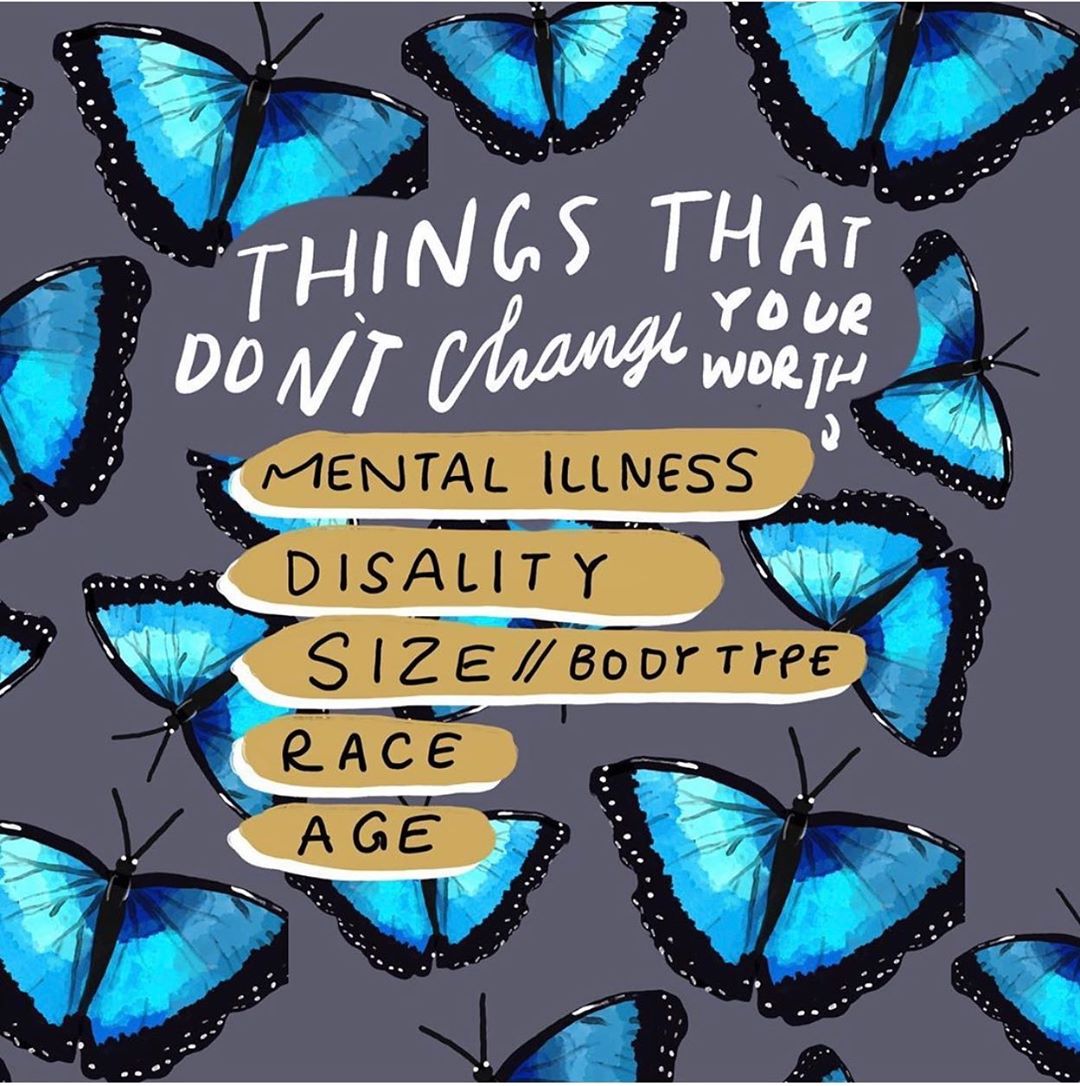 THINGS THAT
DON'T change YOUR
WORTH
MENTAL ILLNESS
DISALITY
SIZE // BODY TYPE
RACE
AGE